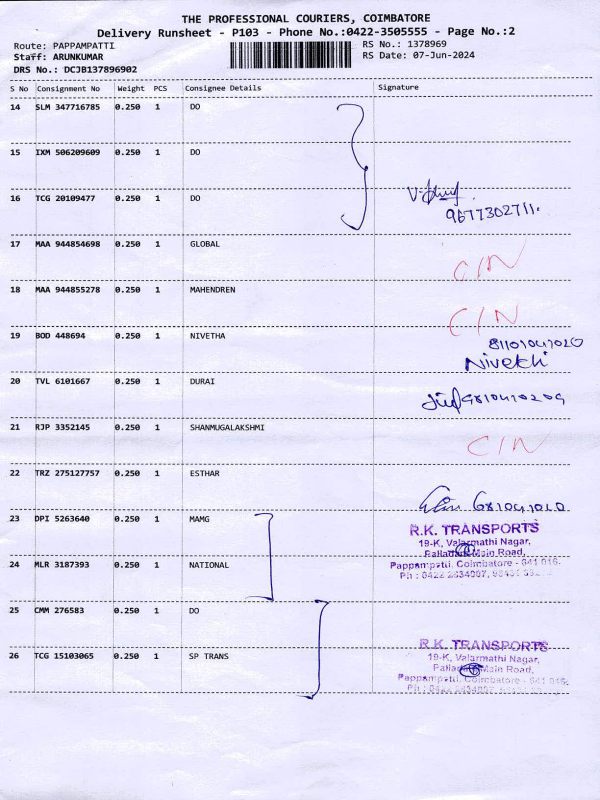 THE PROFESSIONAL COURIERS, COIMBATORE
Delivery Runsheet - P103 - Phone No.:0422-3505555 - Page No.:2
Route: PAPPAMPATTI RS No.: 1378969
Staff: ARUNKUMAR RS Date: 07-Jun-2024
DRS No.: DCJB137896902
S No Consignment No Weight PCS Consignee Details Signature
14 SLM 347716785 0.250 1 DO
15 IXM 506209609 0.250 1 DO
16 TCG 20109477 0.250 1 DO
9677302711.
17 MAA 944854698 0.250 1 GLOBAL
C/N
18 MAA 944855278 0.250 1 MAHENDREN
C/N
19 BOD 448694 0.250 1 NIVETHA
20 TVL 6101667 0.250 1 DURAI
21 RJP 3352145 0.250 1 SHANMUGALAKSHMI
C/N
22 TRZ 275127757 0.250 1 ESTHAR
23 DPI 5263640 0.250 1 MAMG
R.K. TRANSPORTS
19-K, Valarmathi Nagar,
Main Road,
24 MLR 3187393 0.250 1 NATIONAL
Pappampatti, Coimbatore - 641 016.
25 CMM 276583 0.250 1 DO
R.K. TRANSPORTS
26 TCG 15103065 0.250 1 SP TRANS
19-K, Valarmathi Nagar,
Main Road,
Pappampatti, Coimbatore - 641 016.